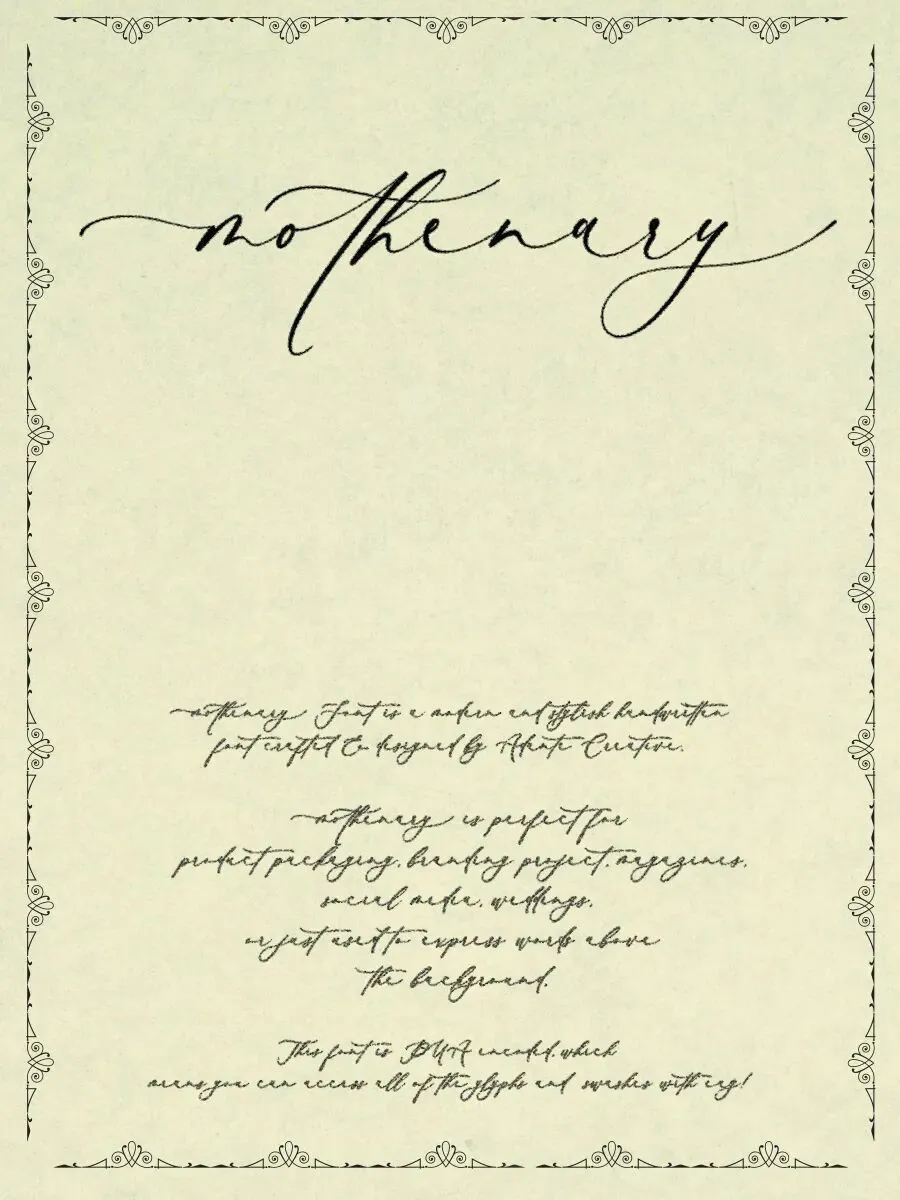 mothenary
mothenary Font is a modern and stylish handwritten
font crafted & designed by Creative.
mothenary is perfect for
product packaging, branding project, magazines,
social media, weddings,
or just used to express words above
the background.
This font is PUA encoded, which
means you can access all of the glyphs and swashes with